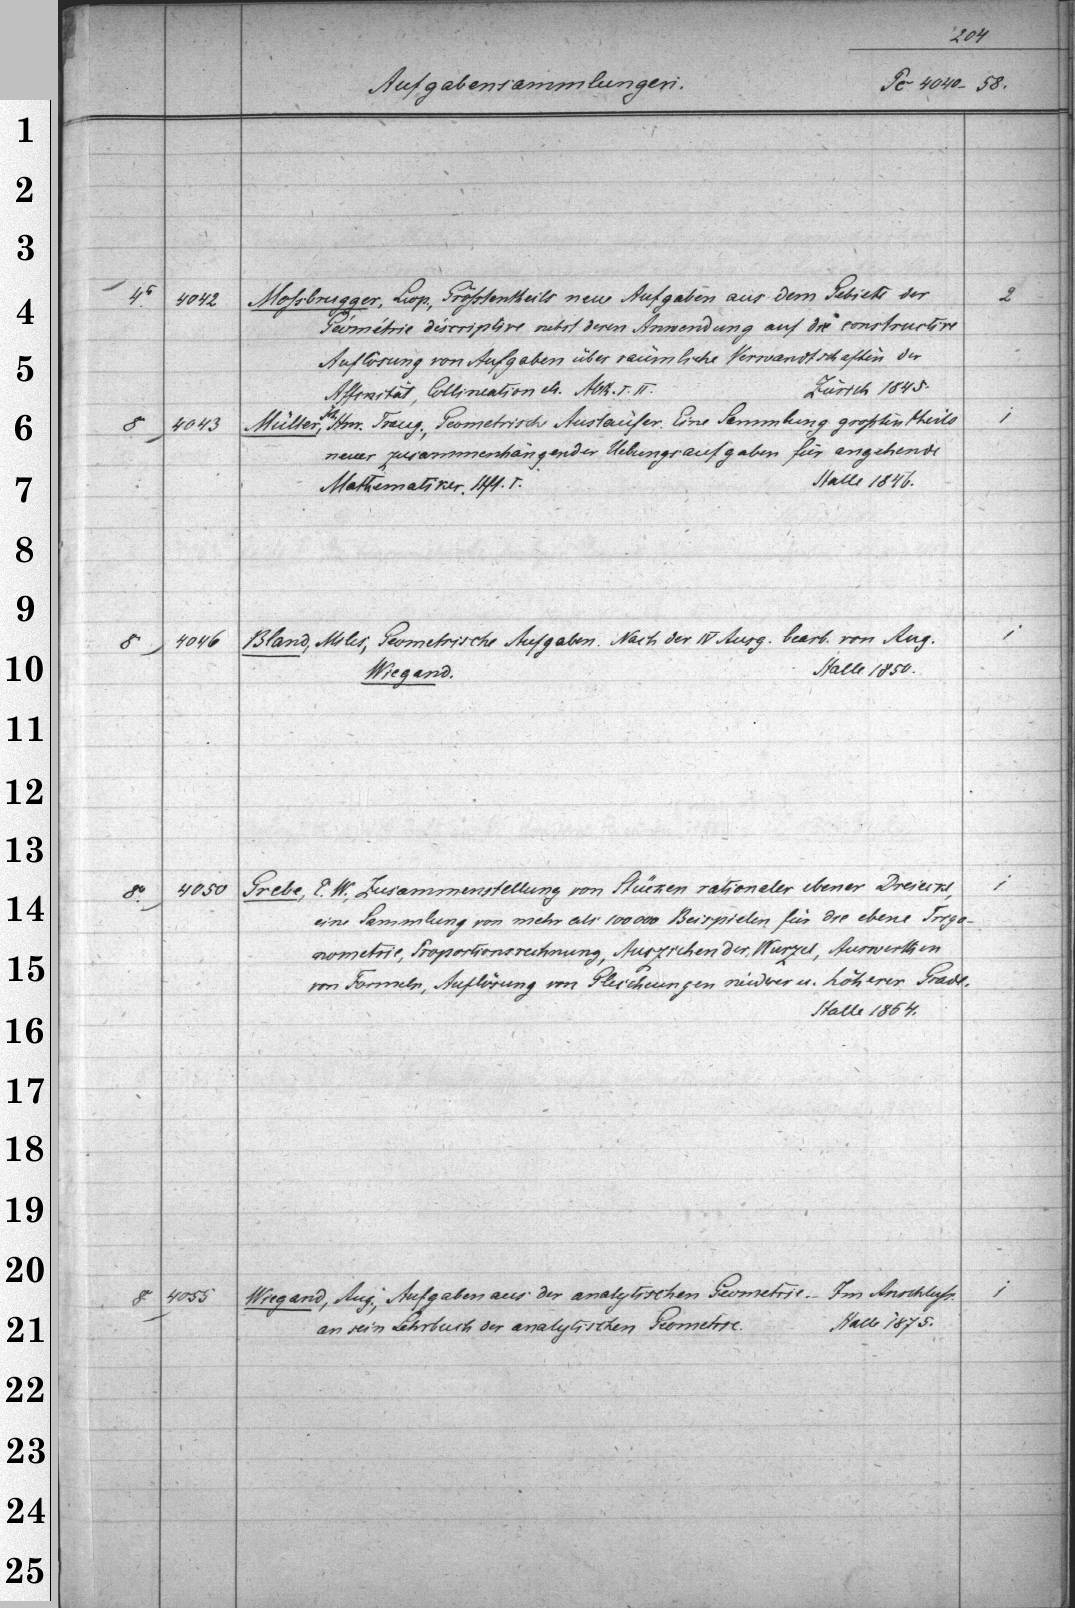 204
Aufgabensammlungen. Pc 4040-58.
1
2
3
4° 4042 Mossbrugger, Leop., Grösstentheils neue Aufgaben aus dem Gebiete der 2
4
Géométrie descriptive nebst deren Anwendung auf die constructive
5
Auflösung von Aufgaben über räumliche Verwandtschaften der
Affinität, Collineation etc. Abth. I. II. Zürich 1845.
6
8 4043 Müller, Joh. Traug., Geometrische Ausläufer. Eine Sammlung grösstentheils 1
neuer zusammenhängender Uebungsaufgaben für angehende
7
Mathematiker. Hft. I. Halle 1846.
8
9
8 4046 Bland, Miles, Geometrische Aufgaben. Nach der IV Ausg. bearb. von Aug. 1
10
Wiegand. Halle 1850.
11
12
13
8° 4050 Grebe, E. W., Zusammenstellung von Stücken rationaler ebener Dreiecke, 1
14
eine Sammlung von mehr als 100000 Beispielen für die ebene Trigo-
nometrie, Proportionsrechnung, Ausziehen der Wurzel, Auswerthen
15
von Formeln, Auflösung von Gleichungen niederer u. höherer Grade.
Halle 1864.
16
17
18
19
20
8 4055 Wiegand, Aug., Aufgaben aus der analytischen Geometrie. - Im Anschluss 1
21
an sein Lehrbuch der analytischen Geometrie. Halle 1875.
22
23
24
25